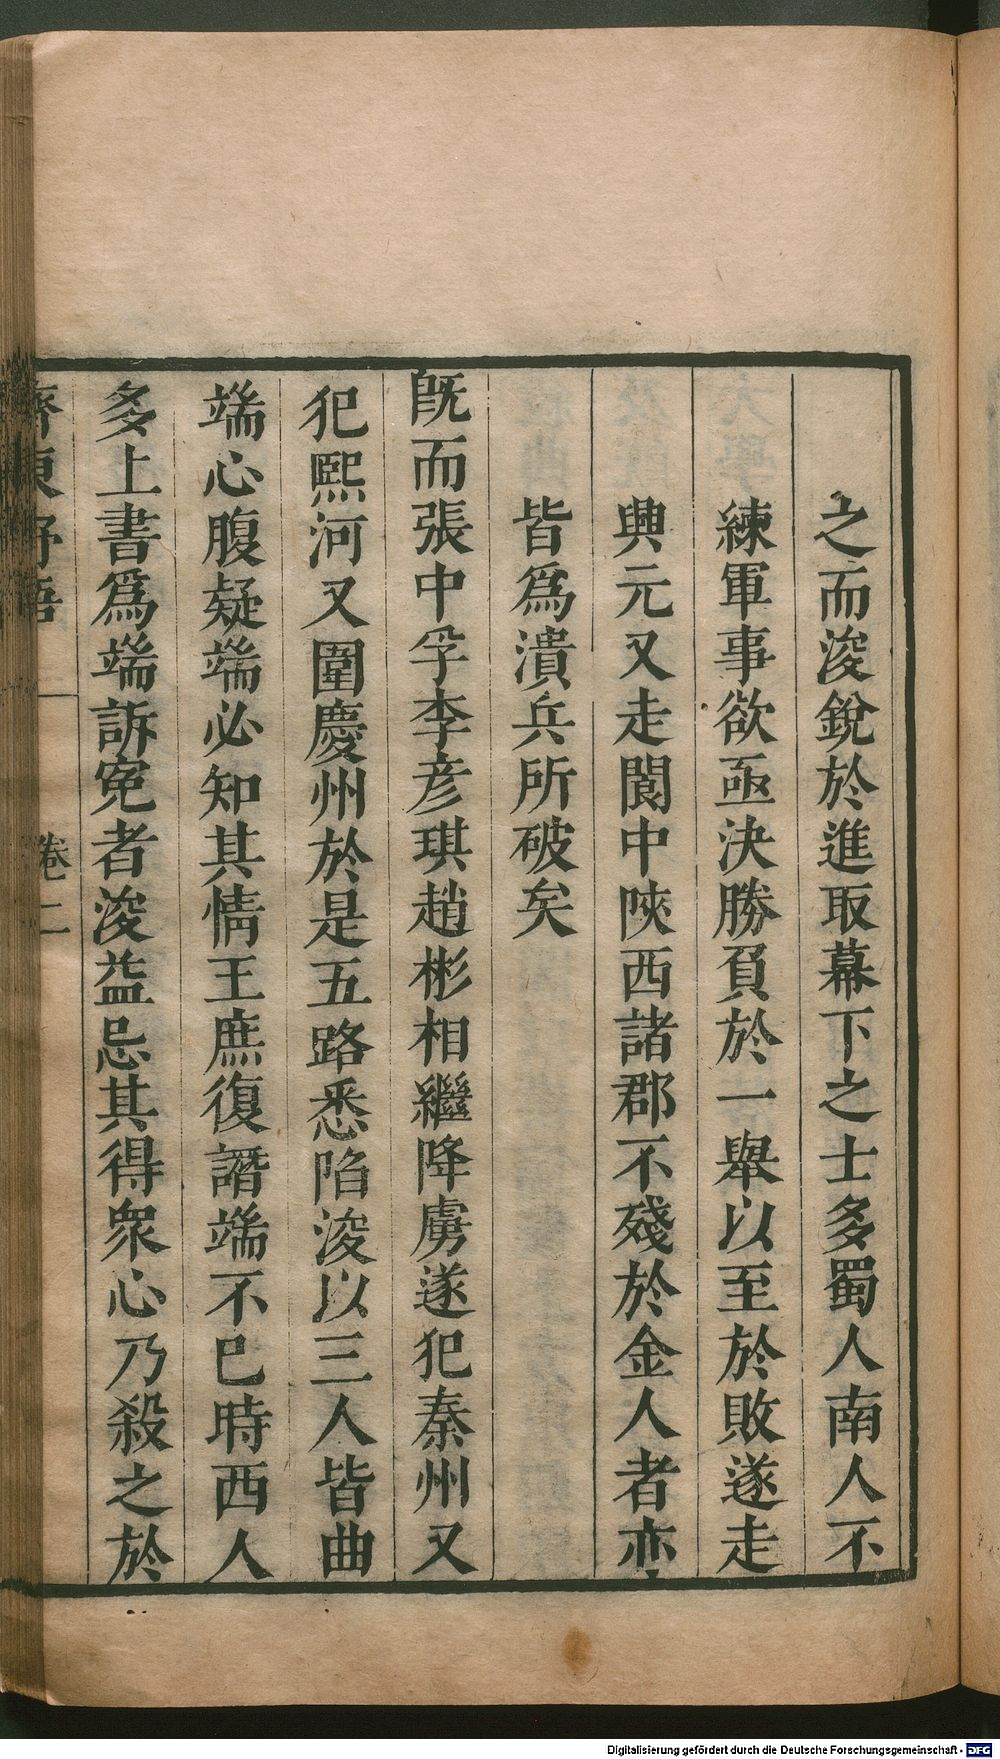 之而浚銳於進取幕下之士多蜀人南人不
練軍事欲亟決勝負於一舉以至於敗遂走
興元又走閬中陝西諸郡不殘於金人者亦
皆爲潰兵所破矣
旣而張中孚李彦琪趙彬相繼降虜遂犯秦州又
犯熙河又圍慶州於是五路悉陷浚以三人皆曲
端心腹疑端必知其情王庶復譖端不巳時西人
多上書爲端訴寃者浚益忌其得衆心乃殺之於
齊東野語 卷二
Digitalisierung gefördert durch die Deutsche Forschungsgemeinschaft - DFG